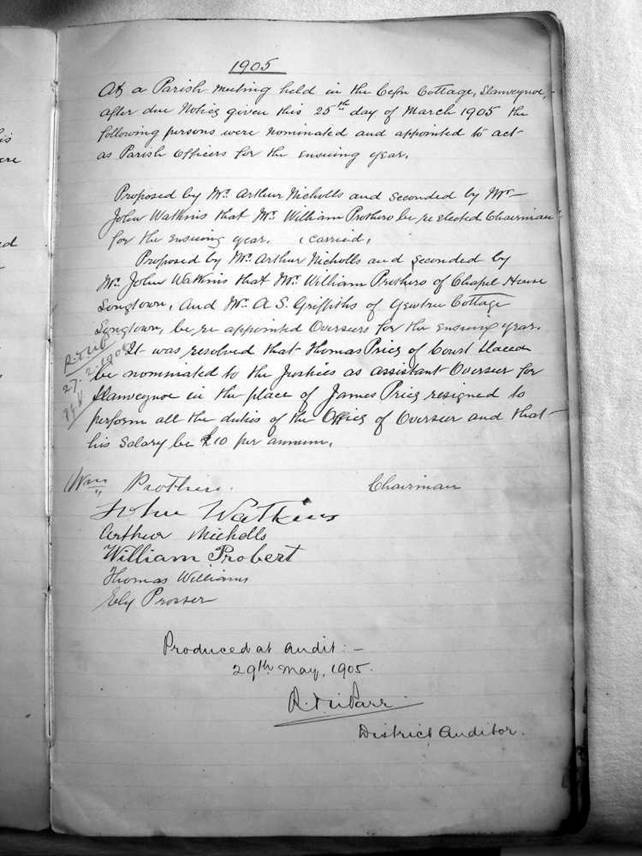 1905
At a Parish meeting held in the Cefn Cottage, Llanveynoe,
after due Notice given this 25th day of March 1905 the
following persons were nominated and appointed to act
as Parish Officers for the ensuing year.
Proposed by Mr. Arthur Nicholls and seconded by Mr
John Watkins that Mr. William Prothero be re elected Chairman
for the ensuing year. (carried,
Proposed by Mr. Arthur Nicholls and seconded by
Mr. John Watkins that Mr. William Prothero of Chapel House
Longtown, and Mr. A S. Griffiths of Yewtree Cottage
Longtown, be re appointed Overseers for the ensuing year.
It was resolved that Thomas Price of Court
be nominated to the Justices as assistant Overseer for
Llanveynoe in the place of James Price resigned to
perform all the duties of the Office of Overseer and that
his Salary be £10 per annum.
Wm Prothero. Chairman
John Watkins
Arthur Nicholls
William Probert
Thomas Williams
Ely Prosser
Produced at Audit:-
29th May, 1905.
District Auditor.